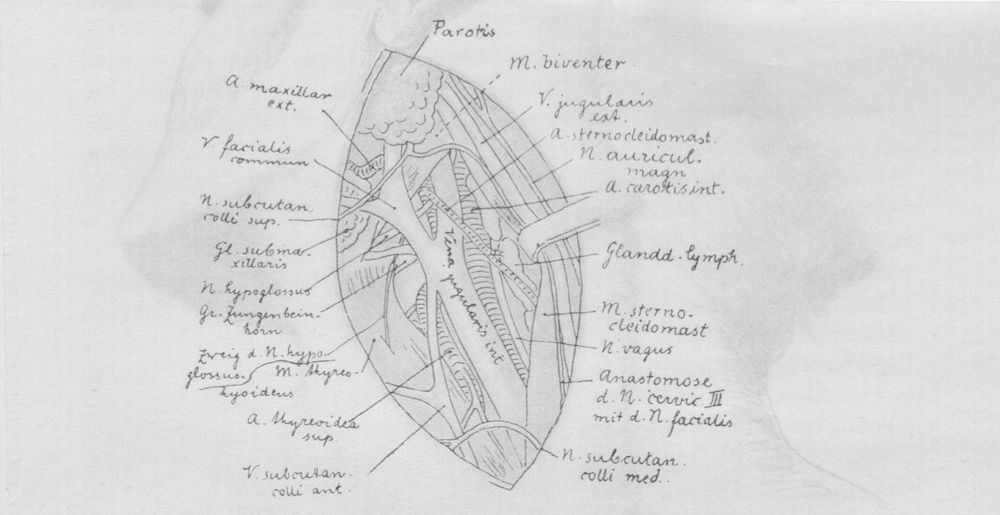 Parotis
M. biventer
A. maxillar
ext.
V. jugularis
ext.
A. sternocleidomast.
V. facialis
commun
N. auricul.
magn
A. carotis int.
N. subcutan.
colli sup.
Gl. subma-
xillaris
Vena jugularis int
Glandd. lymph.
N. hypoglossus
Gr. Zungenbein-
horn
M. sterno-
cleidomast
N. vagus
Zweig d. N. hypo-
glossus.
M. thyreo-
hyoideus
Anastomose
d. N. cervic. III
mit d. N. facialis
A. thyreoidea
sup.
V. subcutan.
colli ant.
N. subcutan.
colli med..